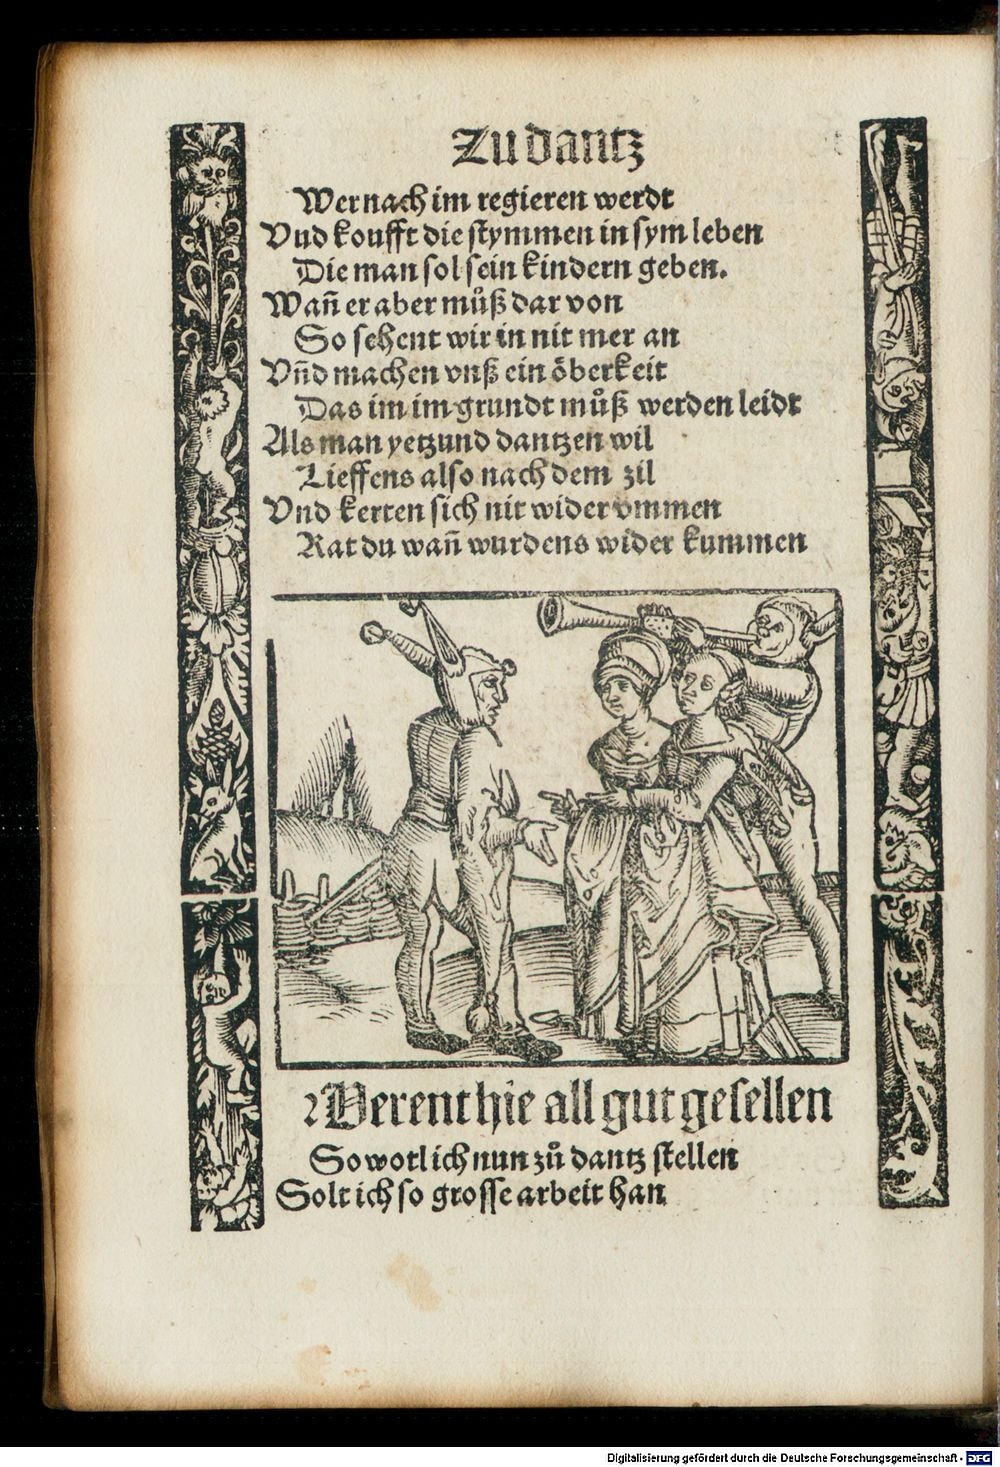 Zu dantz
Wer nach im regieren werdt
Vnd koufft die stymmen in sym leben
Die man sol sein kindern geben.
Wañ er aber můß dar von
So sehent wir in nit mer an
Vñd machen vnß ein öberkeit
Das im im grundt můß werden leidt
Als man yetzund dantzen wil
Lieffens also nach dem zil
Vnd kerten sich nit wider vmmen
Rat du wañ wurdens wider kummen
Werent hie all gut gesellen
So wolt ich nun zů dantz stellen
Solt ich so grosse arbeit han
Digitalisierung gefördert durch die Deutsche Forschungsgemeinschaft - DFG